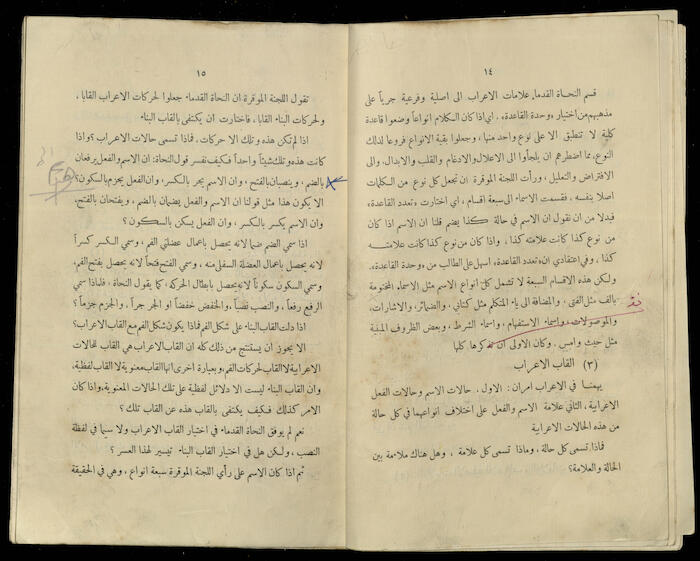 ١٤
قسم النحاة القدماء علامات الاعراب الى اصلية وفرعية جرياً على
مذهبهم من اختيار «وحدة القاعدة» . اي اذا كان الكلام انواعاً وضعوا قاعدة
كلية لا تنطبق الا على نوع واحد منها ، وجعلوا بقية الانواع فروعا لذلك
النوع ، مما اضطرهم ان يلجأوا الى الاعلال والادغام والقلب والابدال ، والى
الافتراض والتعليل ، ورأت اللجنة الموقرة ان تجعل كل نوع من الكلمات
اصلا بنفسه ، فقسمت الاسماء الى سبعة اقسام ، اي اختارت «تعدد القاعدة»
فبدلا من ان نقول ان الاسم في حالة كذا يضم قلنا ان الاسم اذا كان
من نوع كذا كانت علامته كذا ، واذا كان من نوع كذا كانت علامته
كذا ، وفي اعتقادي ان «تعدد القاعدة» اسهل على الطالب من «وحدة القاعدة» .
ولكن هذه الاقسام السبعة لا تشمل كل انواع الاسم مثل الاسماء المختومة
بالف مثل الفتى ، والمضافة الى ياء المتكلم مثل كتابي ، والضمائر ، والاشارات ،
والموصولات ، واسماء الاستفهام ، واسماء الشرط ، وبعض الظروف المبنية
مثل حيث وامس . وكان الاولى ان تذكرها كلها
(٣) القاب الاعراب
يهمنا في الاعراب امران : الاول ، حالات الاسم وحالات الفعل
الاعرابية ، الثاني علامة الاسم والفعل على اختلاف انواعهما في كل حالة
من هذه الحالات الاعرابية
فماذا تسمى كل حالة ، وماذا تسمى كل علامة ، وهل هناك ملاءمة بين
الحالة والعلامة ؟
١٥
تقول اللجنة الموقرة ان النحاة القدماء جعلوا لحركات الاعراب القابا ،
ولحركات البناء القابا ، فاختارت ان يكتفى بالقاب البناء
اذا لم تكن هذه وتلك الا حركات ، فماذا تسمى حالات الاعراب ؟ واذا
كانت هذه وتلك شيئاً واحداً فكيف نفسر قول النحاة : ان الاسم والفعل يرفعان
بالضم ، وينصبان بالفتح ، وان الاسم يجر بالكسر ، وان الفعل يجزم بالسكون ؟
الا يكون هذا مثل قولنا ان الاسم والفعل يضمان بالضم ، ويفتحان بالفتح ،
وان الاسم يكسر بالكسر ، وان الفعل يسكن بالسكون ؟
اذا سمي الضم ضما لانه يحصل باعمال عضلتي الفم ، وسمي الكسر كسراً
لانه يحصل باعمال العضلة السفلى منه ، وسمي الفتح فتحاً لانه يحصل بفتح الفم ،
وسمي السكون سكوناً لانه يحصل بابطال الحركة ، كما يقول النحاة ، فلماذا سمي
الرفع رفعاً ، والنصب نصباً ، والخفض خفضاً او الجر جراً . والجزم جزماً ؟
اذا دلت القاب البناء على شكل الفم فماذا يكون شكل الفم مع القاب الاعراب ؟
الا يجوز ان يستنتج من ذلك كله ان القاب الاعراب هي القاب للحالات
الاعرابية لا القاب لحركات الفم ، وبعبارة اخرى انها القاب معنوية لا القاب لفظية ،
وان القاب البناء ليست الا دلائل لفظية على تلك الحالات المعنوية ، واذا كان
الامر كذلك فكيف يكتفى بالقاب هذه عن القاب تلك ؟
نعم لم يوفق النحاة القدماء في اختيار القاب الاعراب ولا سيما في لفظة
النصب ، ولكن هل في اختيار القاب البناء تيسير لهذا العسر ؟
ثم اذا كان الاسم على رأي اللجنة الموقرة سبعة انواع ، وهي في الحقيقة